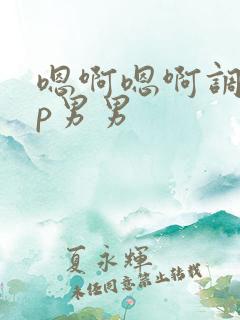 嗯啊嗯啊調
p男男
夏永輝
未经同意禁止转载